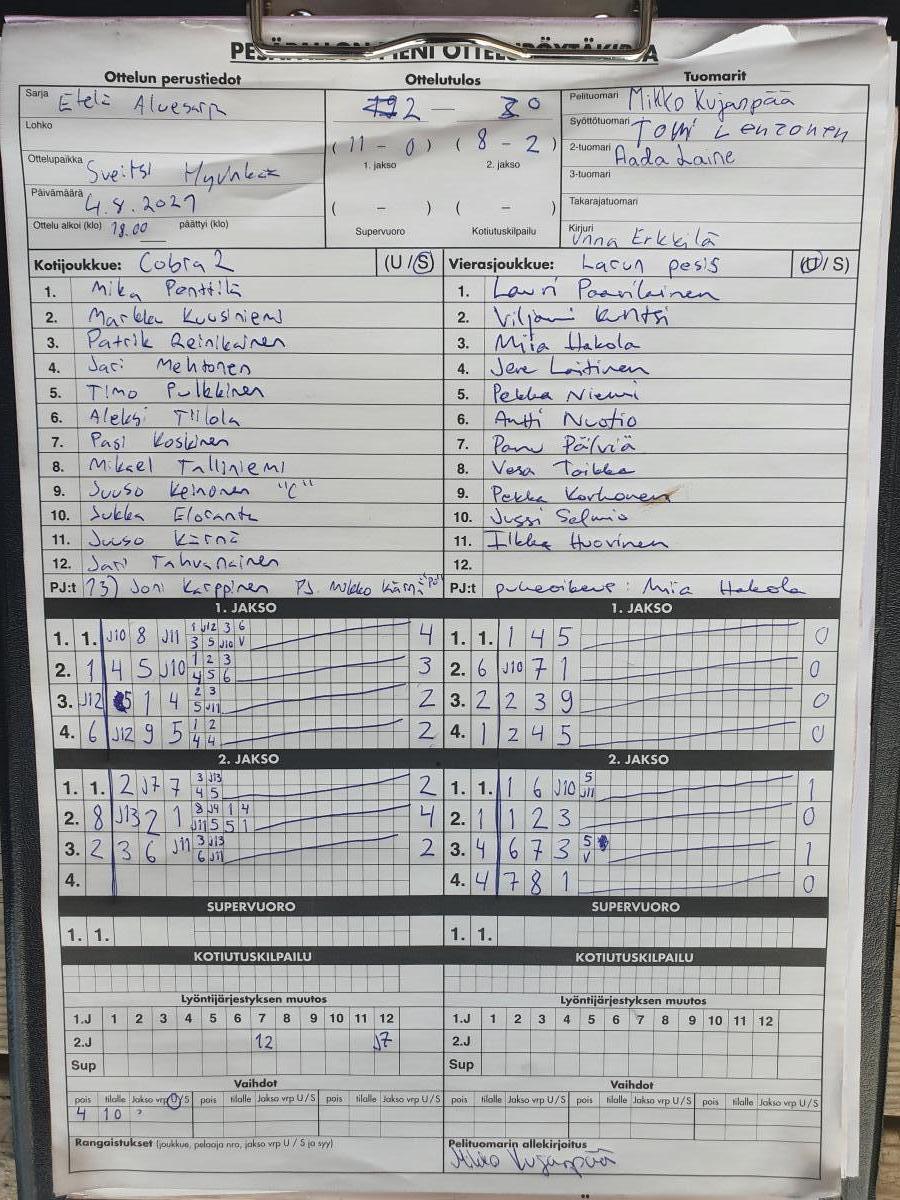 PESÄPALLON PIENI OTTELUPÖYTÄKIRJA
Ottelun perustiedot
Ottelutulos
Tuomarit
Sarja Etelä Aluesarja
Lohko
Ottelupaikka Sveitsi Hyvinkää
Päivämäärä 4.8.2021
Ottelu alkoi (klo) 18.00 päättyi (klo)
2 — 0
( 11 - 0 ) ( 8 - 2 )
1. jakso 2. jakso
( - ) ( - )
Supervuoro Kotiutuskilpailu
Pelituomari Mikko Kujanpää
Syöttötuomari Tomi Lehtonen
2-tuomari Aada Laine
3-tuomari
Takarajatuomari
Kirjuri Unna Erkkilä
Kotijoukkue: Cobra 2 (U / S)
1. Mika Penttilä
2. Markku Kuusiniemi
3. Patrik Reinikainen
4. Jari Mehtonen
5. Timo Pulkkinen
6. Aleksi Tiilola
7. Pasi Koskinen
8. Mikael Talliniemi
9. Juuso Keinonen "C"
10. Jukka Eloranta
11. Juuso Kärnä
12. Jari Tahvanainen
PJ:t 13) Joni Karppinen PJ. Mikko Kärnä
Vierasjoukkue: Larun pesis (U / S)
1. Lauri Paavilainen
2. Viljami Kuntsi
3. Miia Hakola
4. Jere Laitinen
5. Pekka Niemi
6. Antti Nuotio
7. Panu Pälviä
8. Vesa Toikka
9. Pekka Korhonen
10. Jussi Salmio
11. Ilkka Huovinen
12.
PJ:t puheoikeus: Miia Hakola
1. JAKSO
1. 1. J10 8 J11 1 J12 3 6 4
3 5 J10 V
2. 1 4 5 J10 1 2 3 3
4 5 6
3. J12 5 1 4 2 3 2
5 J11
4. 6 J12 9 5 1 2 2
4 4
1. JAKSO
1. 1. 1 4 5 0
2. 6 J10 7 1 0
3. 2 2 3 9 0
4. 1 2 4 5 0
2. JAKSO
1. 1. 2 J7 7 3 J13 2
4 5
2. 8 J13 2 1 8 J4 1 4 4
J11 5 5 1
3. 2 3 6 J11 3 J13 2
6 J11
4.
2. JAKSO
1. 1. 1 6 J10 5 1
J11
2. 1 1 2 3 0
3. 4 6 7 3 5 1
V
4. 4 7 8 1 0
SUPERVUORO
1. 1.
SUPERVUORO
1. 1.
KOTIUTUSKILPAILU
KOTIUTUSKILPAILU
Lyöntijärjestyksen muutos
1.J 1 2 3 4 5 6 7 8 9 10 11 12
2.J 12 J7
Sup
Lyöntijärjestyksen muutos
1.J 1 2 3 4 5 6 7 8 9 10 11 12
2.J
Sup
Vaihdot
pois tilalle Jakso vrp U/S pois tilalle Jakso vrp U/S pois tilalle Jakso vrp U/S
4 10
Vaihdot
pois tilalle Jakso vrp U/S pois tilalle Jakso vrp U/S pois tilalle Jakso vrp U/S
Rangaistukset (joukkue, pelaaja nro, jakso vrp U / S ja syy)
Pelituomarin allekirjoitus
Mikko Kujanpää